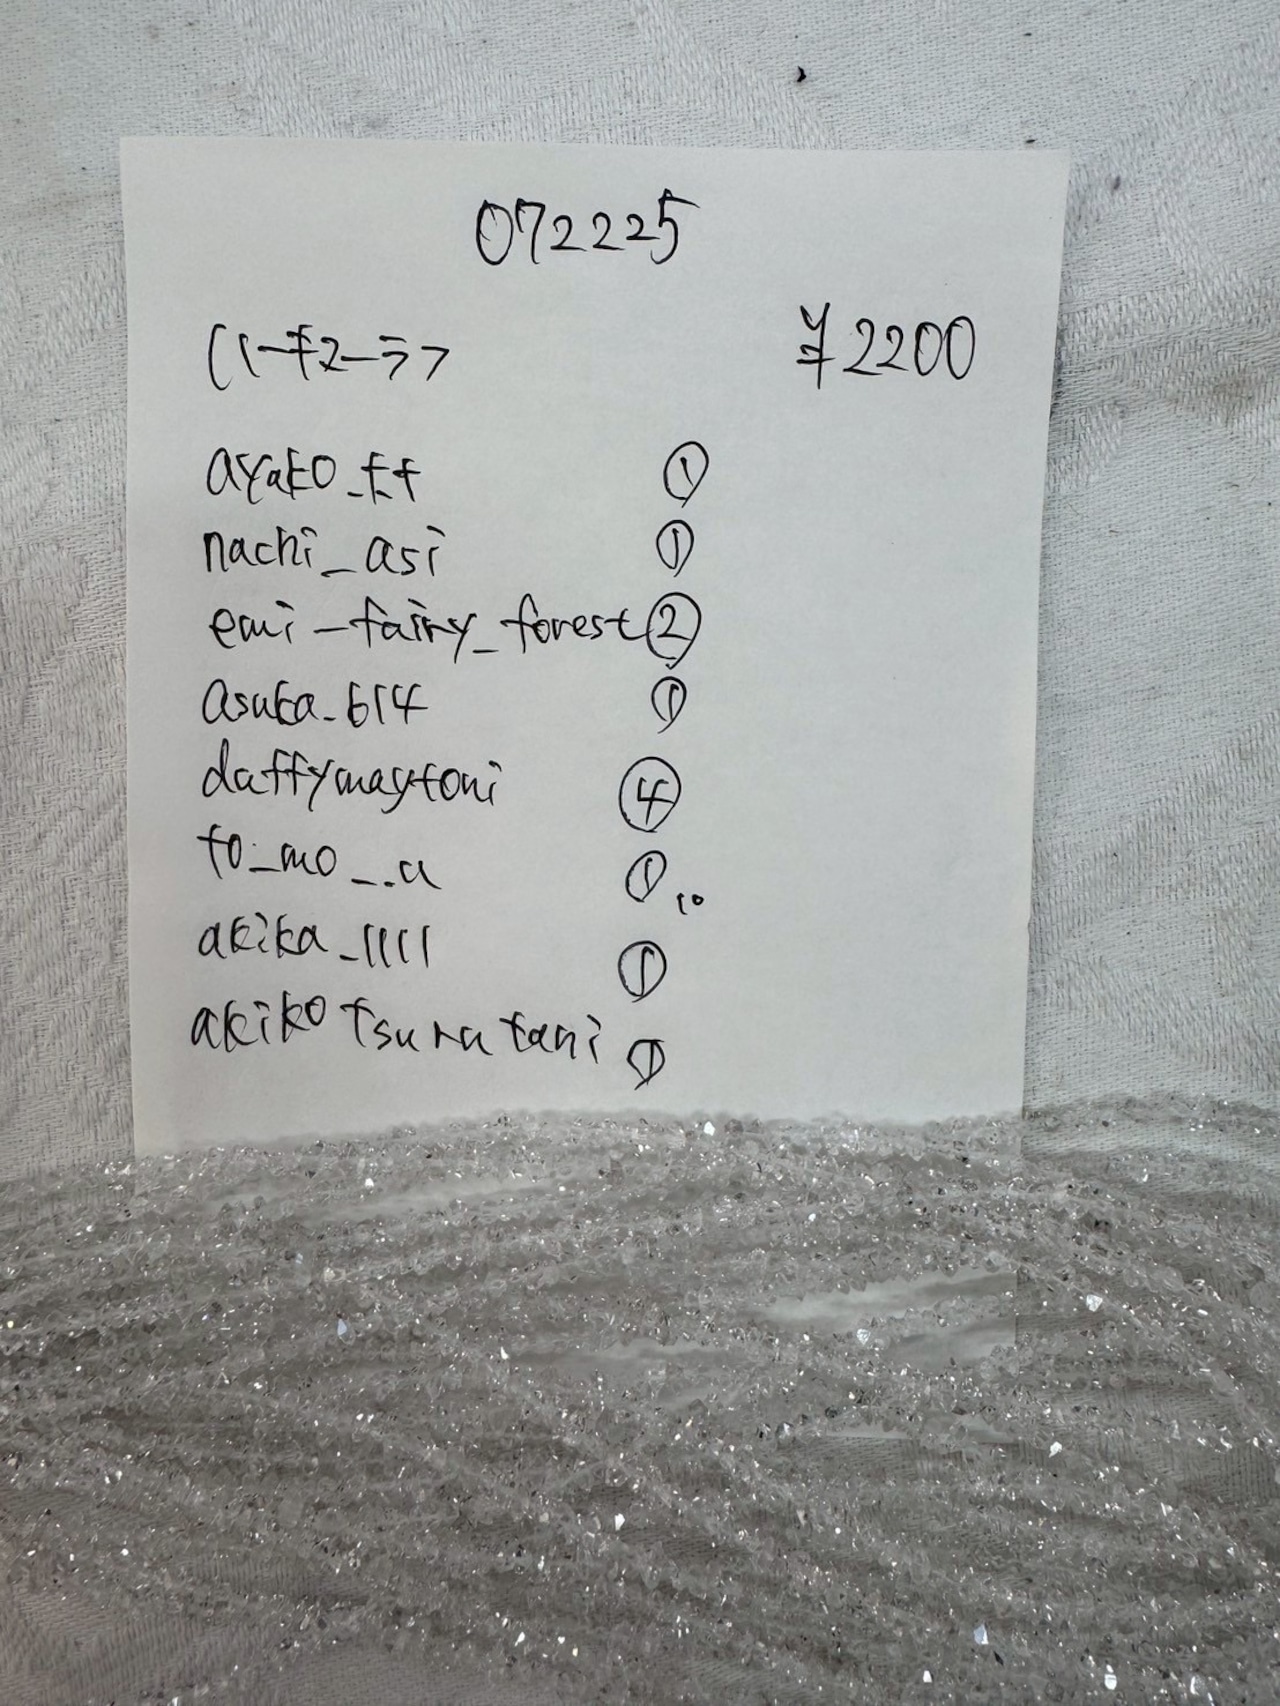 072225
ハーキマーラフ ¥2200
ayako_t.t ①
nachi_asi ①
emi_fairy_forest ②
asuka_614 ①
daffymaytomi ④
to_mo__.a ①
akika_1111 ①
akikotsurutani ①